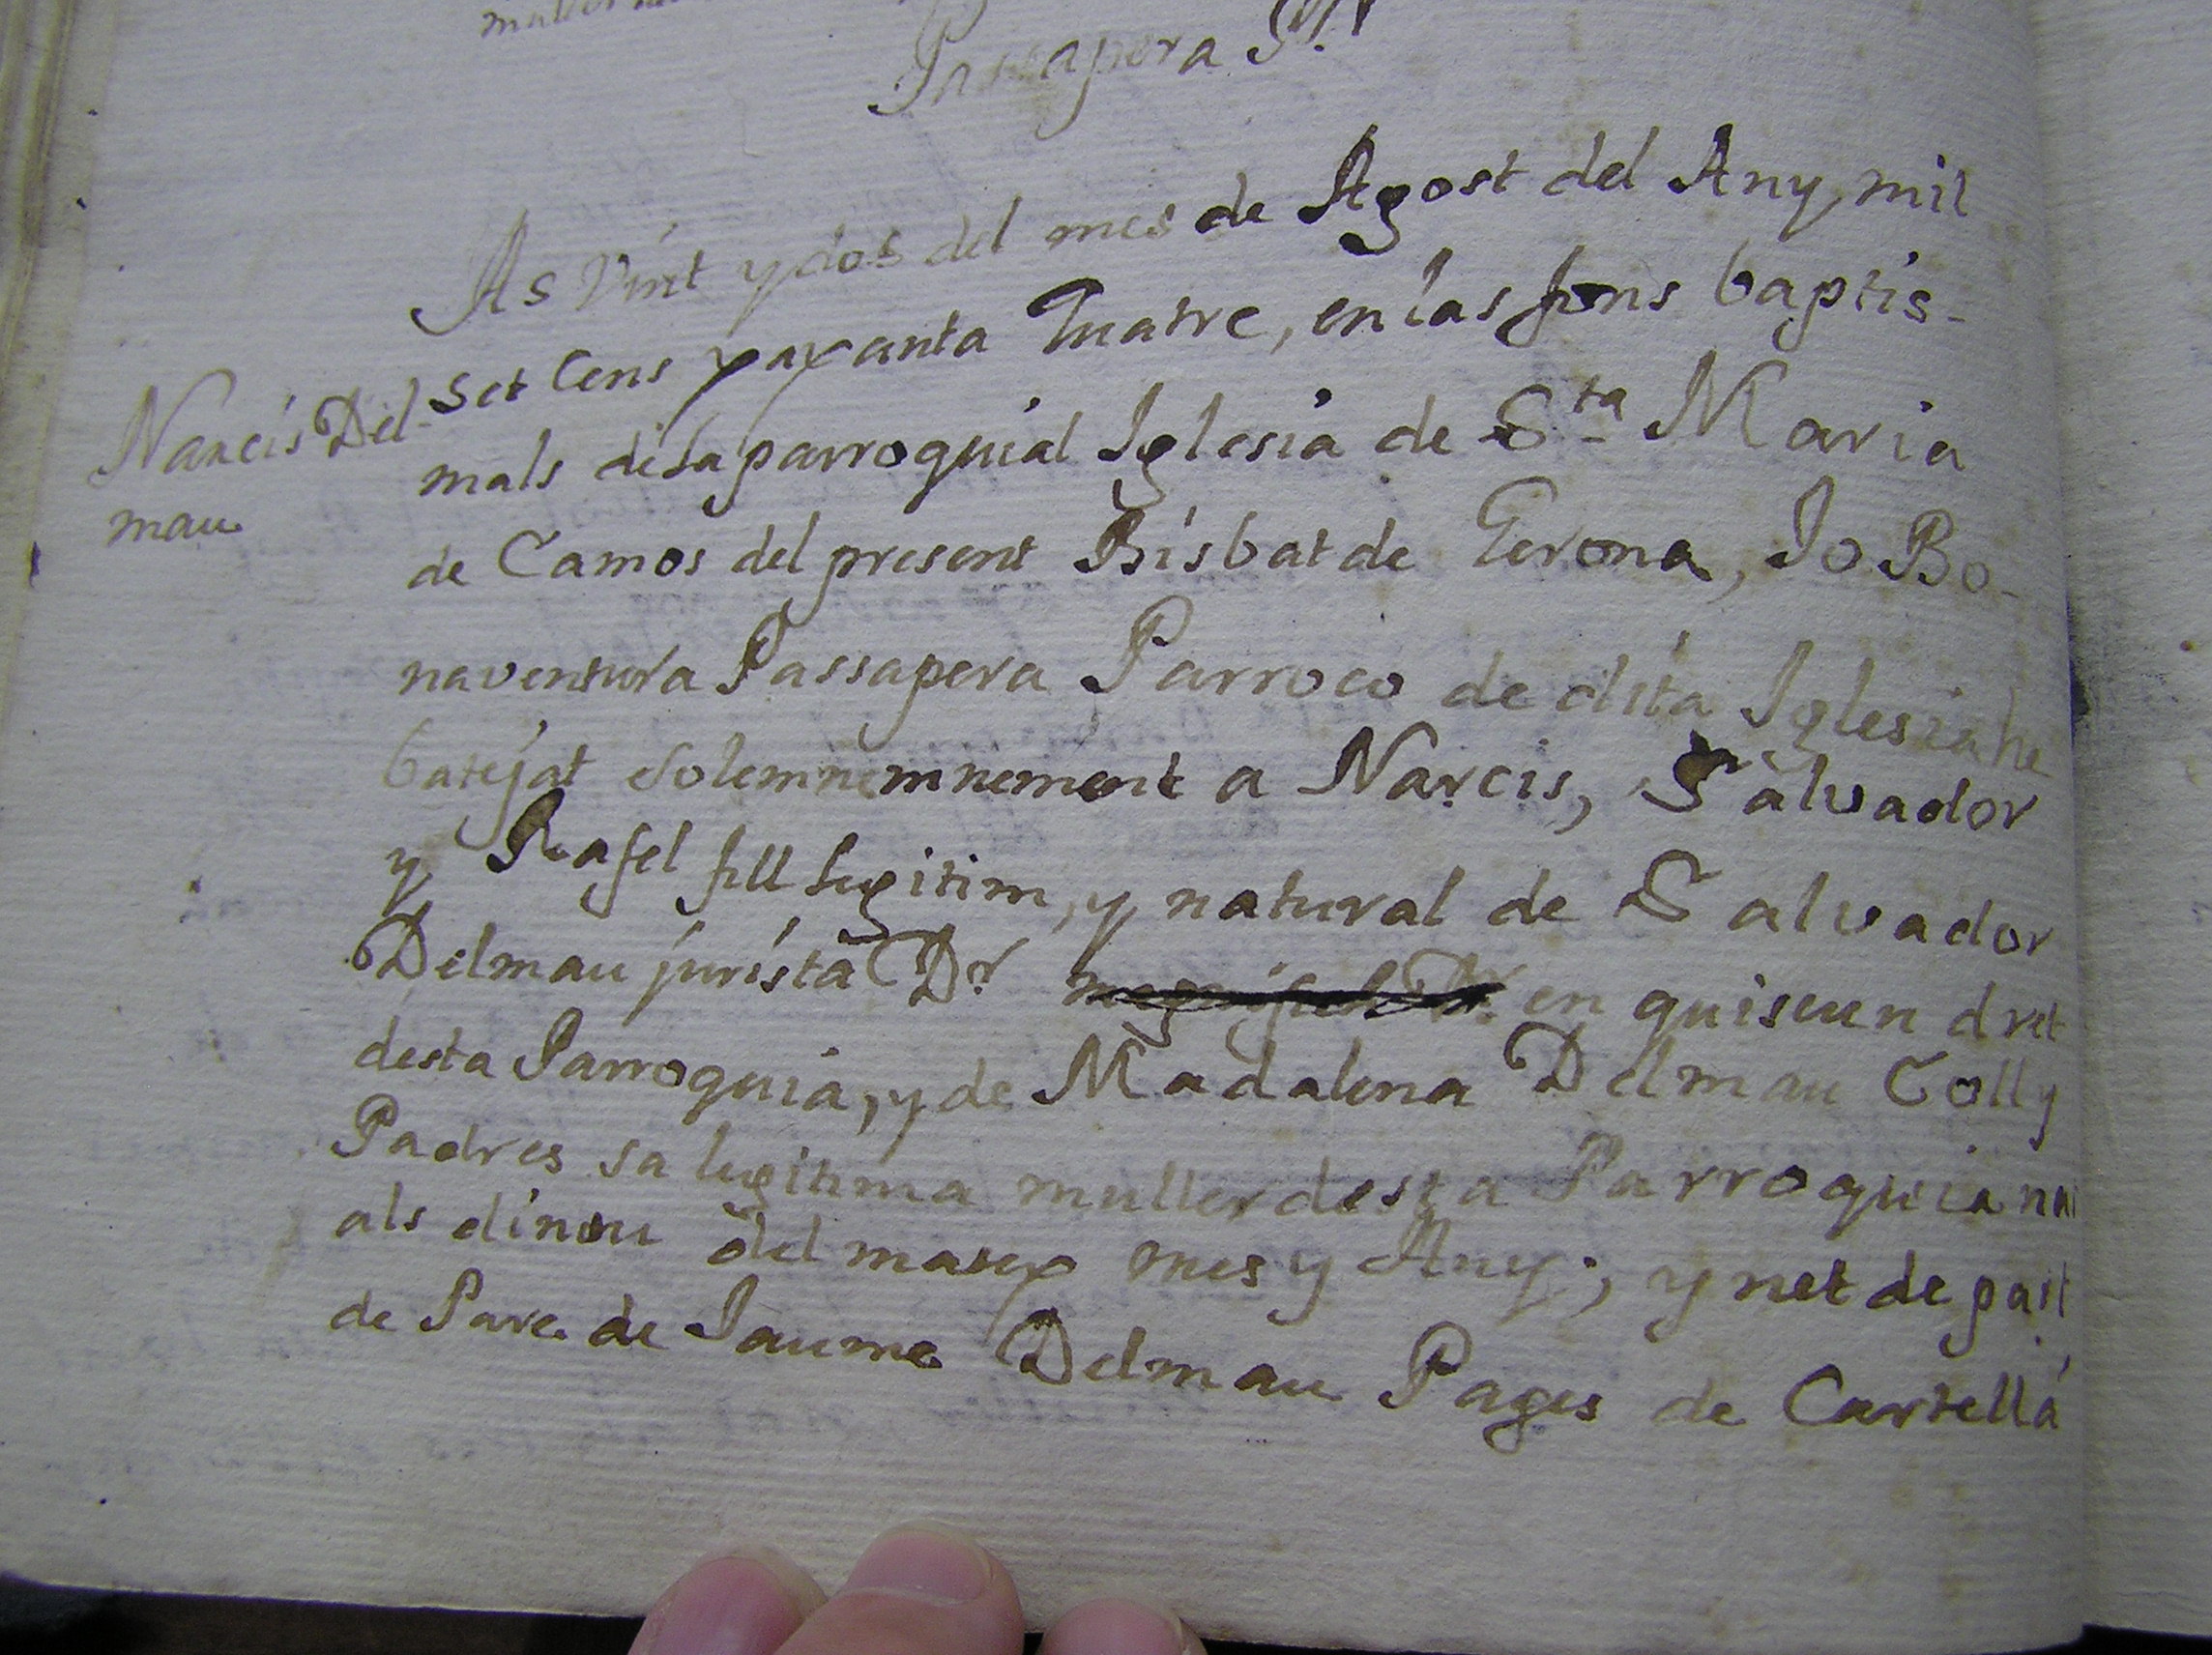 Passapera
As Vint y dos del mes de Agost del Any mil
Set Cens xaxanta Quatre, en las fons baptis-
Narcis Del-
mau
mals de la parroquial Iglesia de Sta Maria
de Camos del present Bisbat de Gerona, Jo Bo-
naventura Passapera Parroco de dita Iglesia he
batejat solemnemnement a Narcis, Salvador
y Rafel fill llegitim, y natural de Salvador
Delmau jurista Dr en quiscun dret
desta Parroquia, y de Madalena Delmau Coll y
Padres sa legitima muller desta Parroquia nat
als dinou del mateix mes y Any; y net de part
de Pare de Jaume Delmau Pages de Cartellá